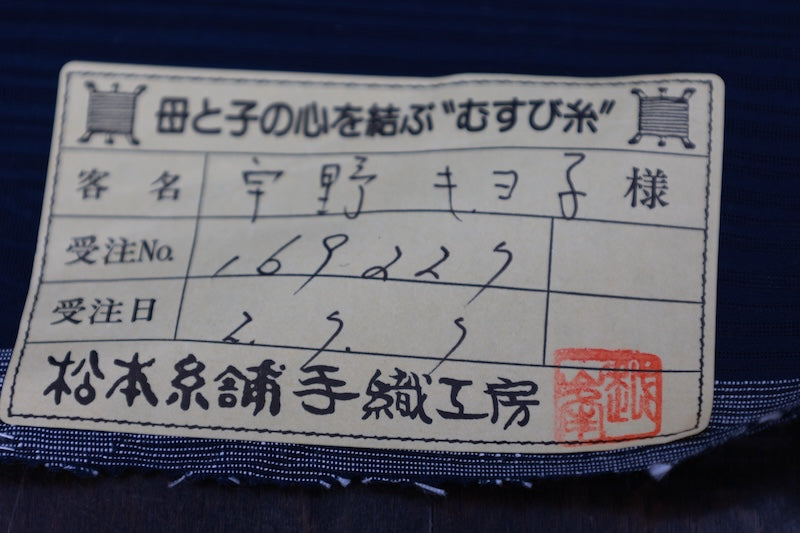 母と子の心を結ぶ“むすび糸”
客名 宇野キヨ子様
受注No. 169229
受注日 2. 9. 9
松本糸舗手織工房